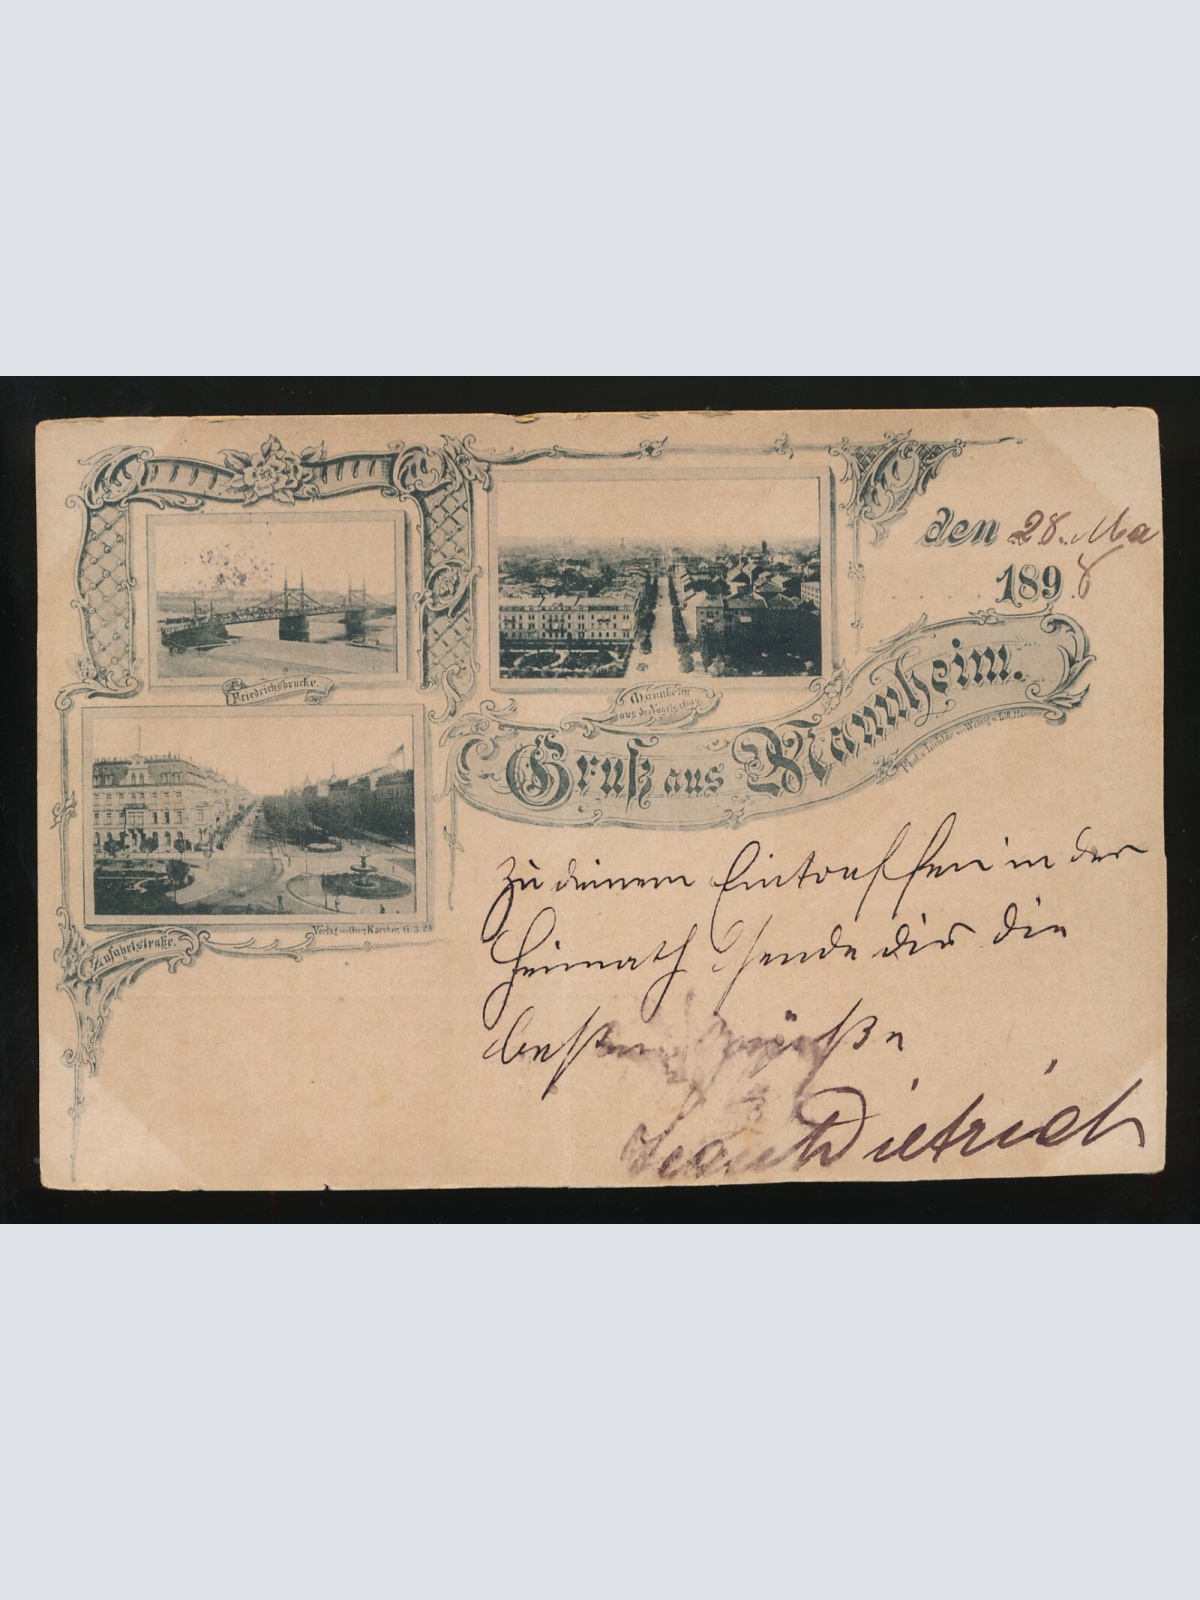 den 28. Ma
1898
Friedrichsbrücke.
Mannheim
aus der Vogelschau.
Gruß aus Mannheim.
Zufahrtstraße.
Verlag von Georg Karcher, G. 3. 20
Zu deinem Eintreffen in der
Heimath sende dir die
besten Grüße
Dietrich